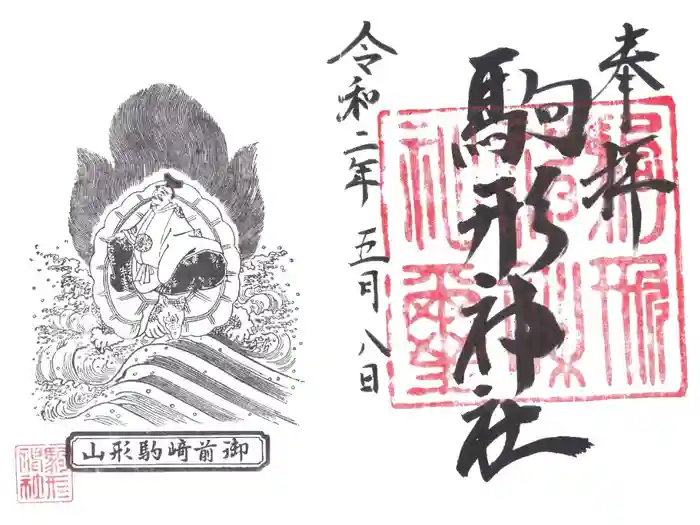 奉拝
駒形神社
令和二年 五月八日
御前崎駒形山
駒形神社